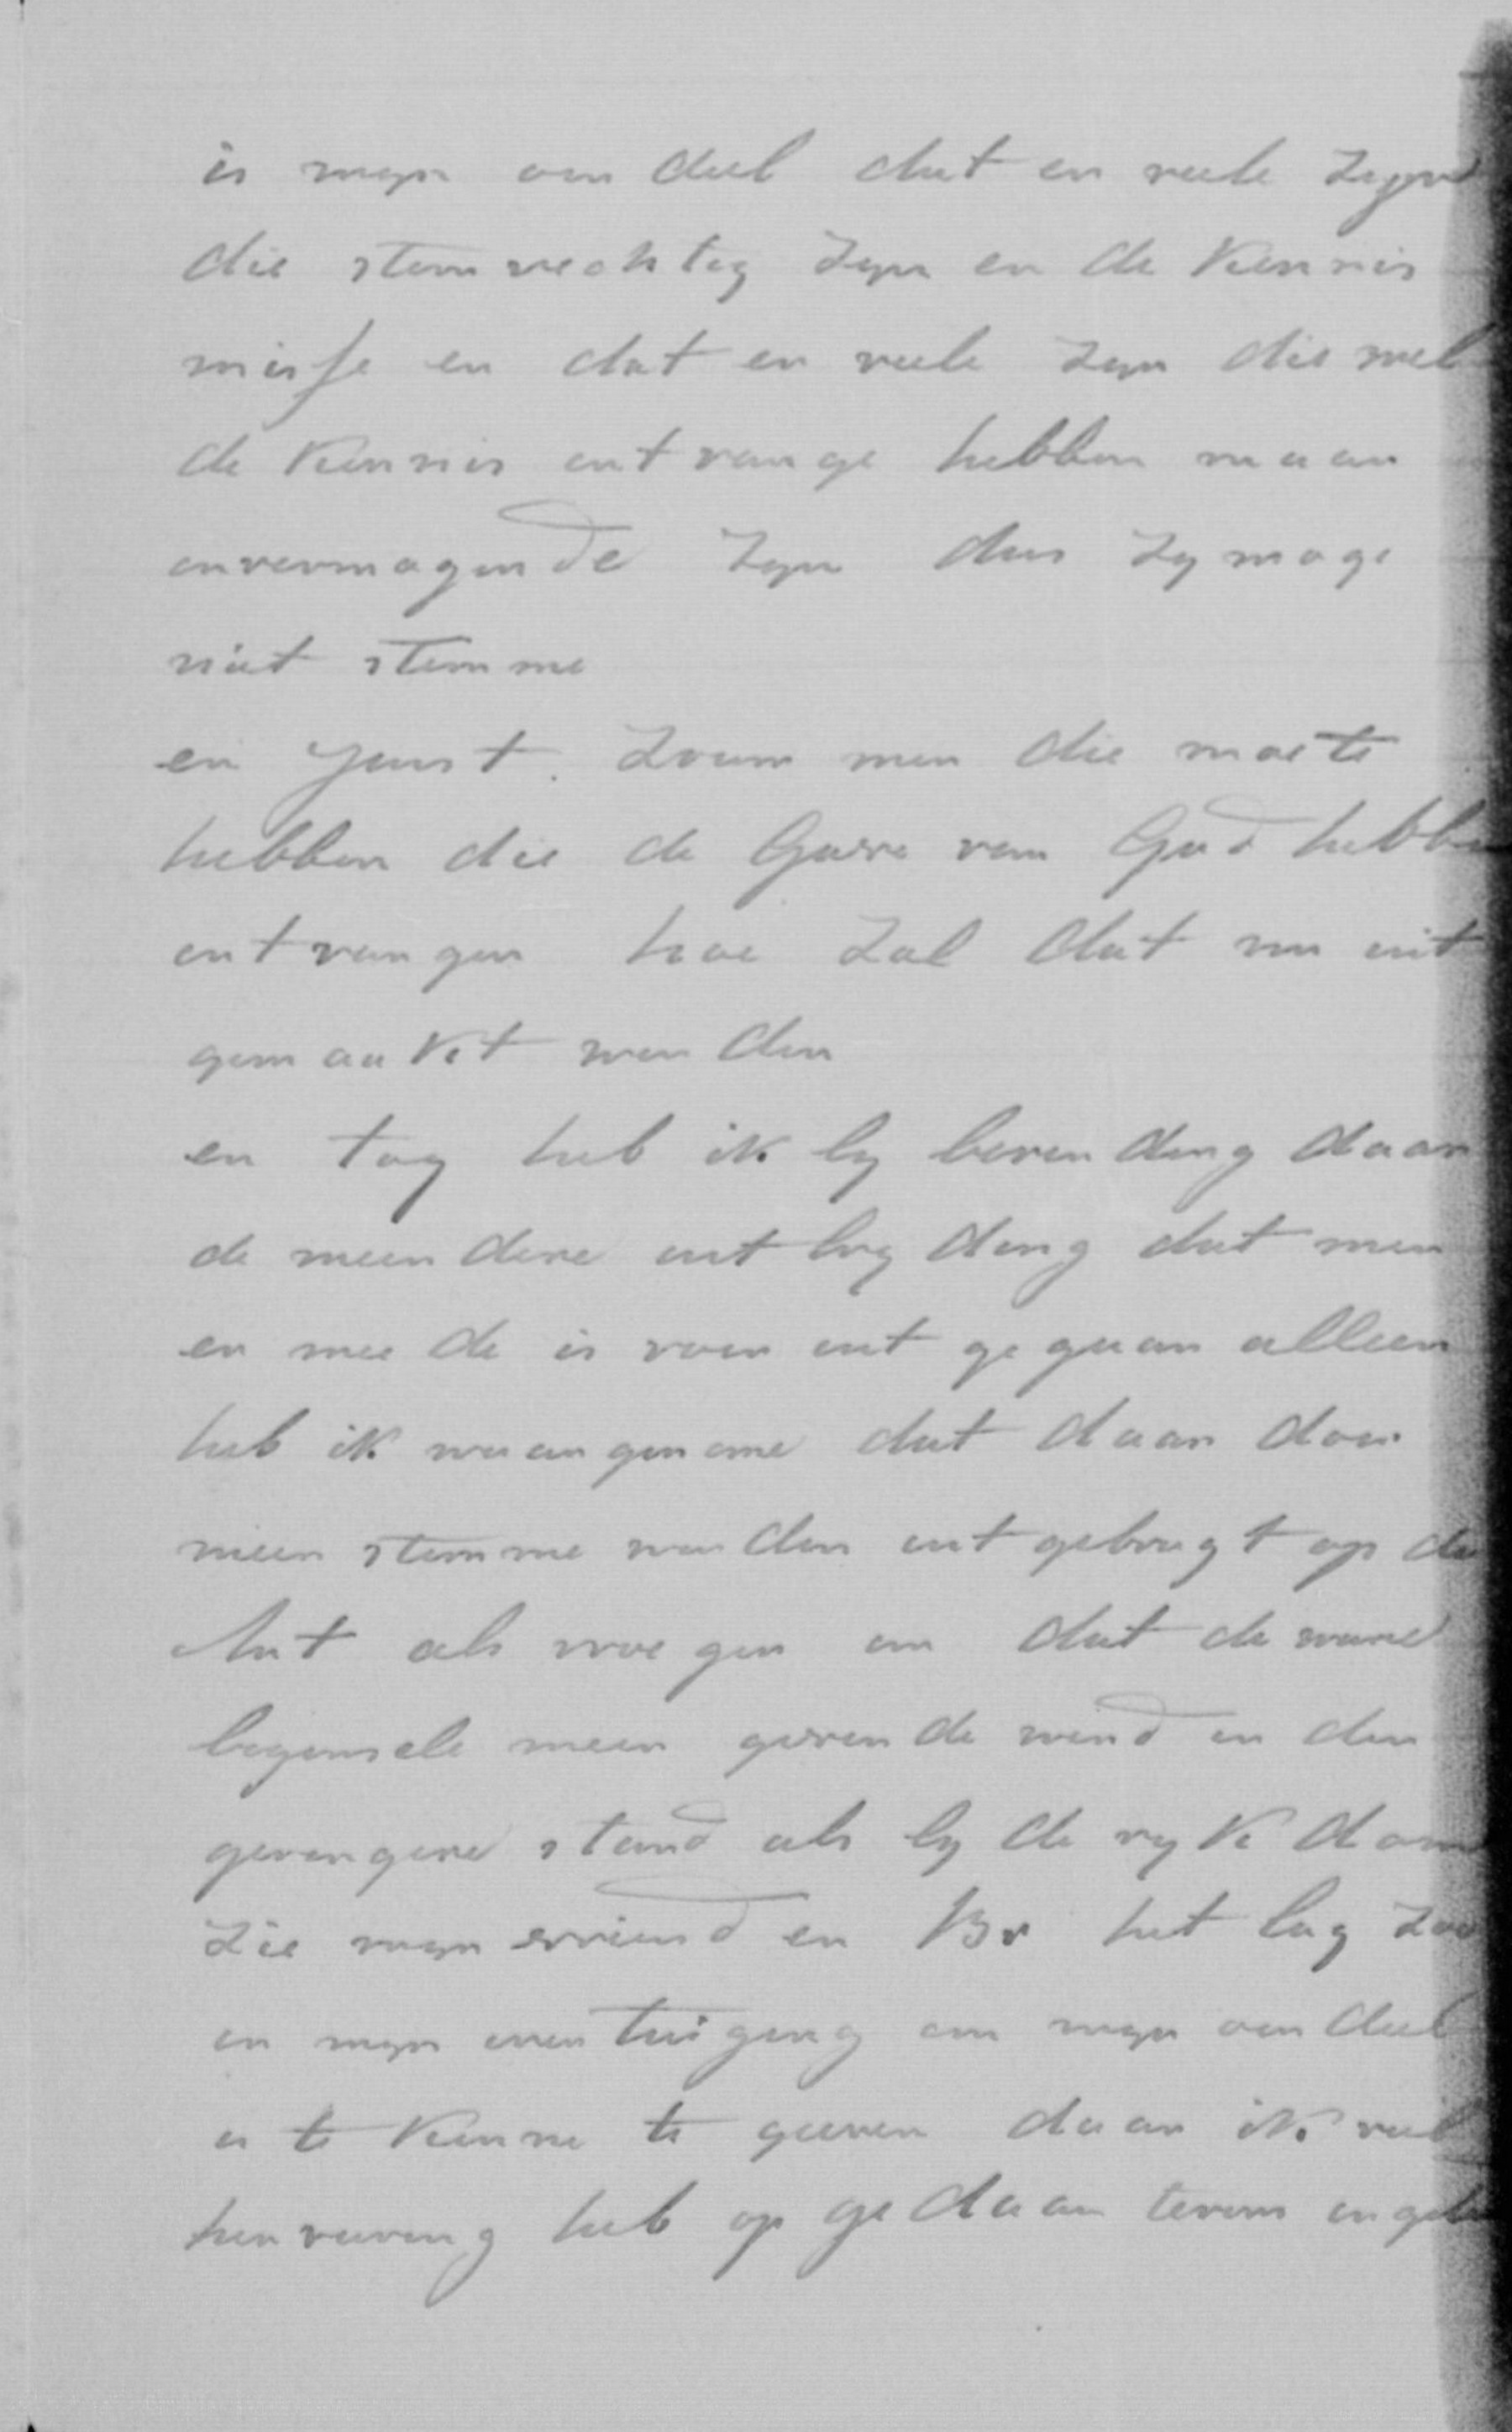 is myn oordeel dat er veele zyn
die stemrechteg zyn en de kennis
misse en dat er veele zyn die wel
de kennis ontvange hebben maar
onvermogende zyn dus zy moge
niet stemme
en juist. zoum men die moete
hebben die de Gaeve van God hebbe
ontvangen hoe zal dat nu uit
gemaakt werden
en tog heb ik by bevending daar
de meerdere uit byding dat men
er mede is voor uit gegaan alleen
heb ik waargenome dat daar door
meer stemme werden uitgebragt op de
Ant als vroegen om dat de ware
beginsele meer geverende werd in den
geringere stand als by de rykdom
zie myn vriend en Br het lag zoo
in myn overtuiging om myn oordeel
is te kenne te geeven daar ik veel
hervaring heb op gedaan tevens